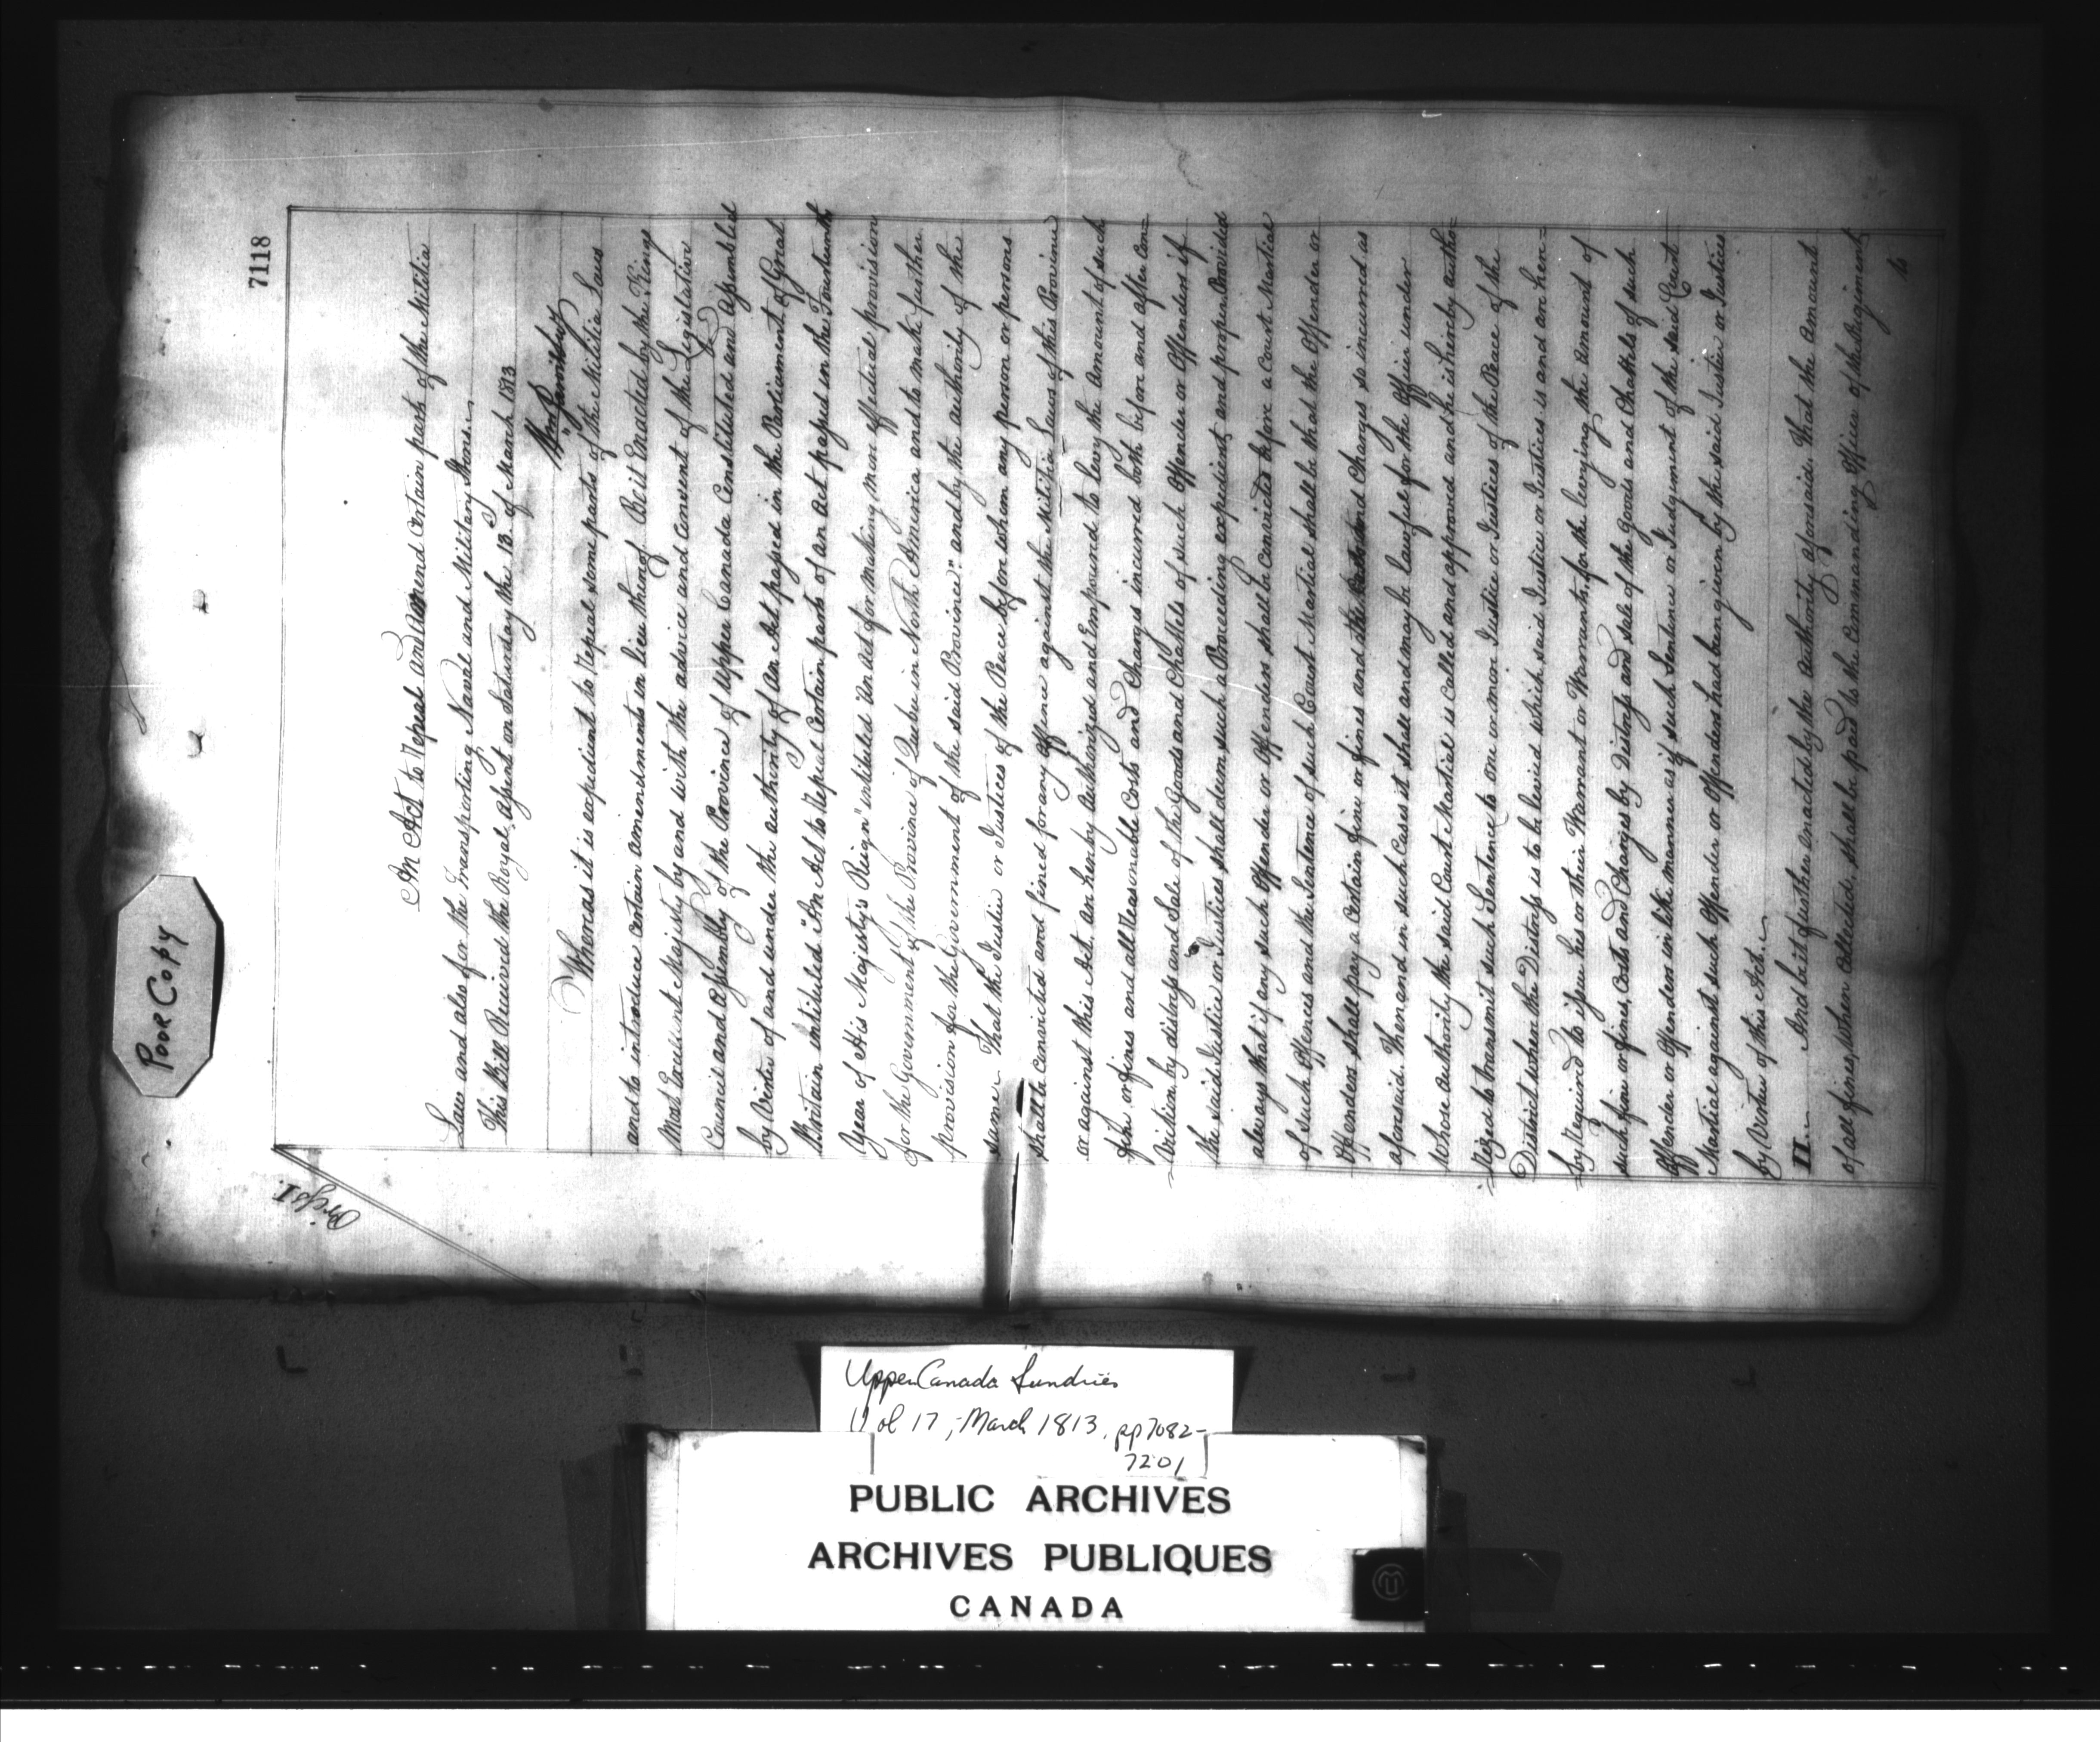 7118
Poor Copy
Page I.
An Act to repeal and Amend Certain parts of the Militia
Laws and also for the transporting Naval and Military Stores.
This Bill Received the Royal Assent on Saturday the 13 of March 1813
Whereas it is expedient to repeal some parts of the Militia Laws
and to introduce certain amendments in lieu thereof Be it Enacted by the Kings
Most Excellent Majesty by and with the advice and Consent of the Legislative
Council and Assembly of the Province of Upper Canada Constituted and Assembled
by Virtue of and under the authority of An Act passed in the Parliament of Great
Britain intituled "An Act to repeal Certain parts of an Act passed in the Fourteenth
Year of His Majesty's Reign" intituled "An act for making more effectual provision
for the Government of the Province of Quebec in North America and to make further
provision for the Government of the said Province:" and by the authority of the
same That the Justice or Justices of the Peace before whom any person or persons
shall be Convicted and fined for any Offence against the Militia Laws of this Province
or against this Act, are hereby Authorized and Empowered to levy the Amount of such
fine or fines and all reasonable Costs and Charges incurred both before and after Con=
=viction by distress and Sale of the Goods and Chattels of such Offender or Offenders if
the said Justice or Justices shall deem such a Proceeding expedient, and proper. Provided
always that if any such Offender or Offenders shall be Convicted before a Court Martial
of such Offences and the Sentence of such Court Martial shall be that the Offender or
Offenders shall pay a Certain fine or fines and the Costs and Charges so incurred as
aforesaid. Then and in such Cases it shall and may be lawful for the Officer under
whose Authority the said Court Martial is Called and approved and he is hereby autho=
=rized to transmit such Sentence to one or more Justice or Justices of the Peace of the
District where the Distress is to be levied which said Justice or Justices is and are here=
=by required to issue his or their Warrant or Warrants, for the levying the Amount of
such fine or fines, Costs and Charges by Distress and Sale of the Goods and Chattels of such
Offender or Offenders in like manner as if such Sentence or Judgement of the said Court
Martial against such Offender or Offenders had been given by the said Justice or Justices
by Virtue of this Act.
II. And be it further enacted by the Authority aforesaid. That the Amount
of all fines, when Collected, shall be paid to the Commanding Officer of the Regiment
to
Upper Canada Sundries
Vol 17, - March 1813, pp 7082-
7201
PUBLIC ARCHIVES
ARCHIVES PUBLIQUES
CANADA